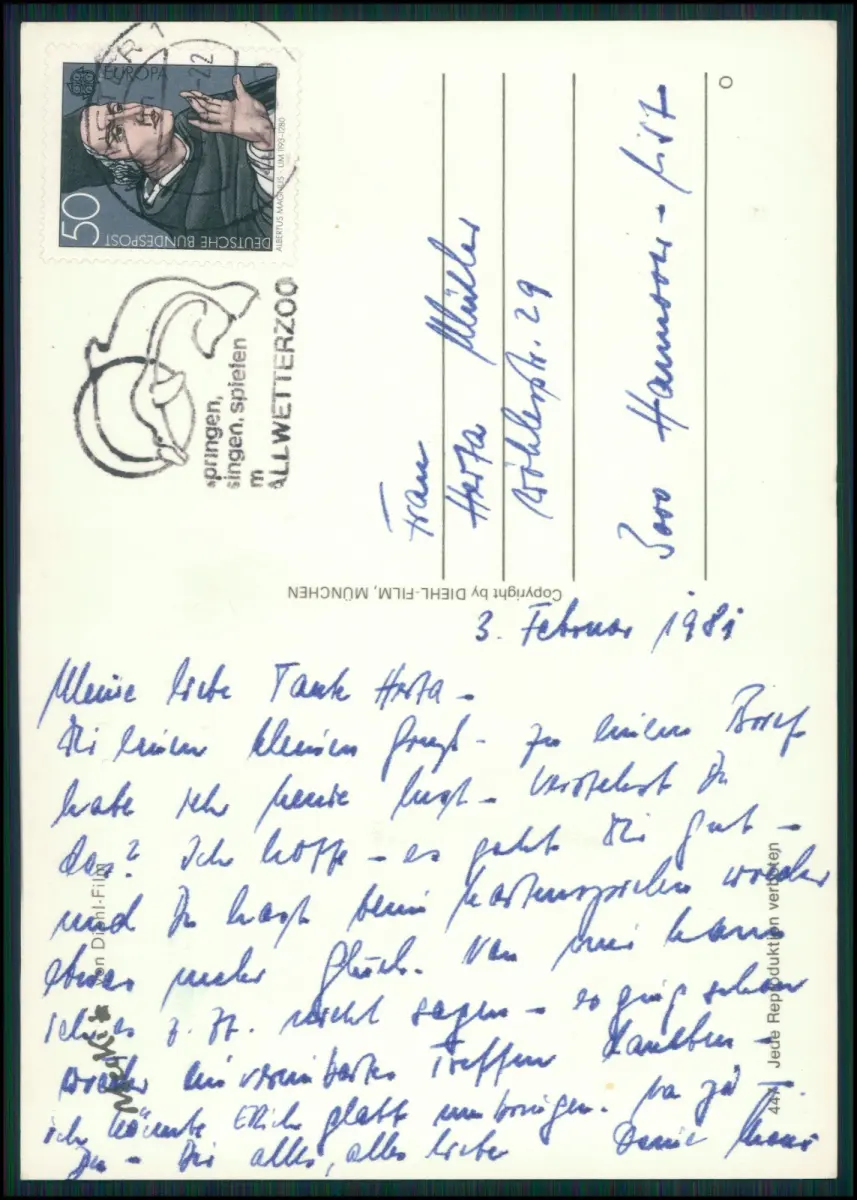 EUROPA
50
DEUTSCHE BUNDESPOST
ALBERTUS MAGNUS · UM 1193-1280
springen,
singen, spielen
im
ALLWETTERZOO
Frau
Herta Müller
Wöhlerstr. 29
3000 Hannover - List
Copyright by DIEHL-FILM, MÜNCHEN
3. Februar 1981
Meine liebe Tante Herta -
Dir einen kleinen Gruß - zu einem Brief
habe ich keine Lust - verstehst Du
das? Ich hoffe - es geht Dir gut -
und Du hast beim Kartenspielen wieder
etwas mehr Glück. Von mir kann
ich es z. Zt. nicht sagen - es ging schon
wieder ein vereinbartes Treffen daneben -
ich könnte Erich glatt umbringen. Na ja
Du - Dir alles, alles Liebe Deine
Mecki von Diehl-Film
447 Jede Reproduktion verboten